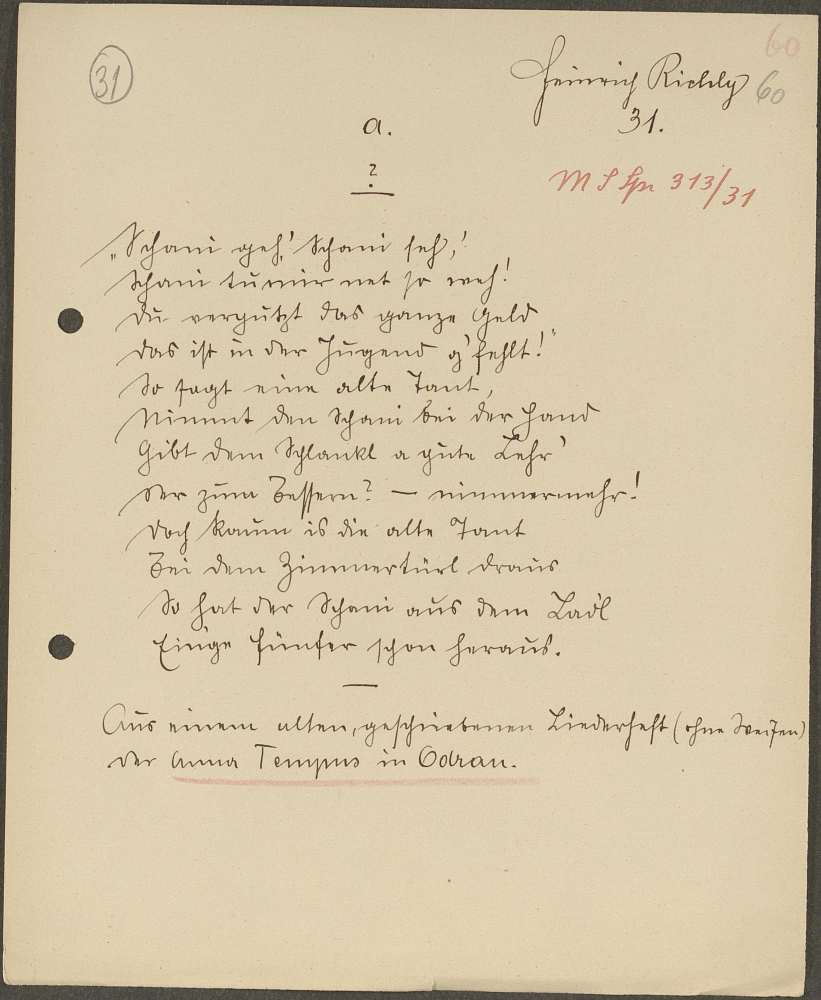 31
60
Heinrich Richly 60
31.
a.
?
M S Spr 313/31
„Schani geh,' Schani seh,'
Schani tu mir net so weh!
Du vergutzt das ganze Geld
Das ist in der Jugend g'fehlt!"
So sagt eine alte Tant,
Nimmt den Schani bei der Hand
Gibt dem Schlankl a gute Lehr'
Der zum Bessern? — nimmermehr!
Doch kaum is die alte Tant
Bei dem Zimmertürl draus
So hat der Schani aus dem Ladl
Einige Fünfer schon heraus.
Aus einem alten, geschriebenen Liederheft (ohne Weisen)
der Anna Tempus in Odrau.